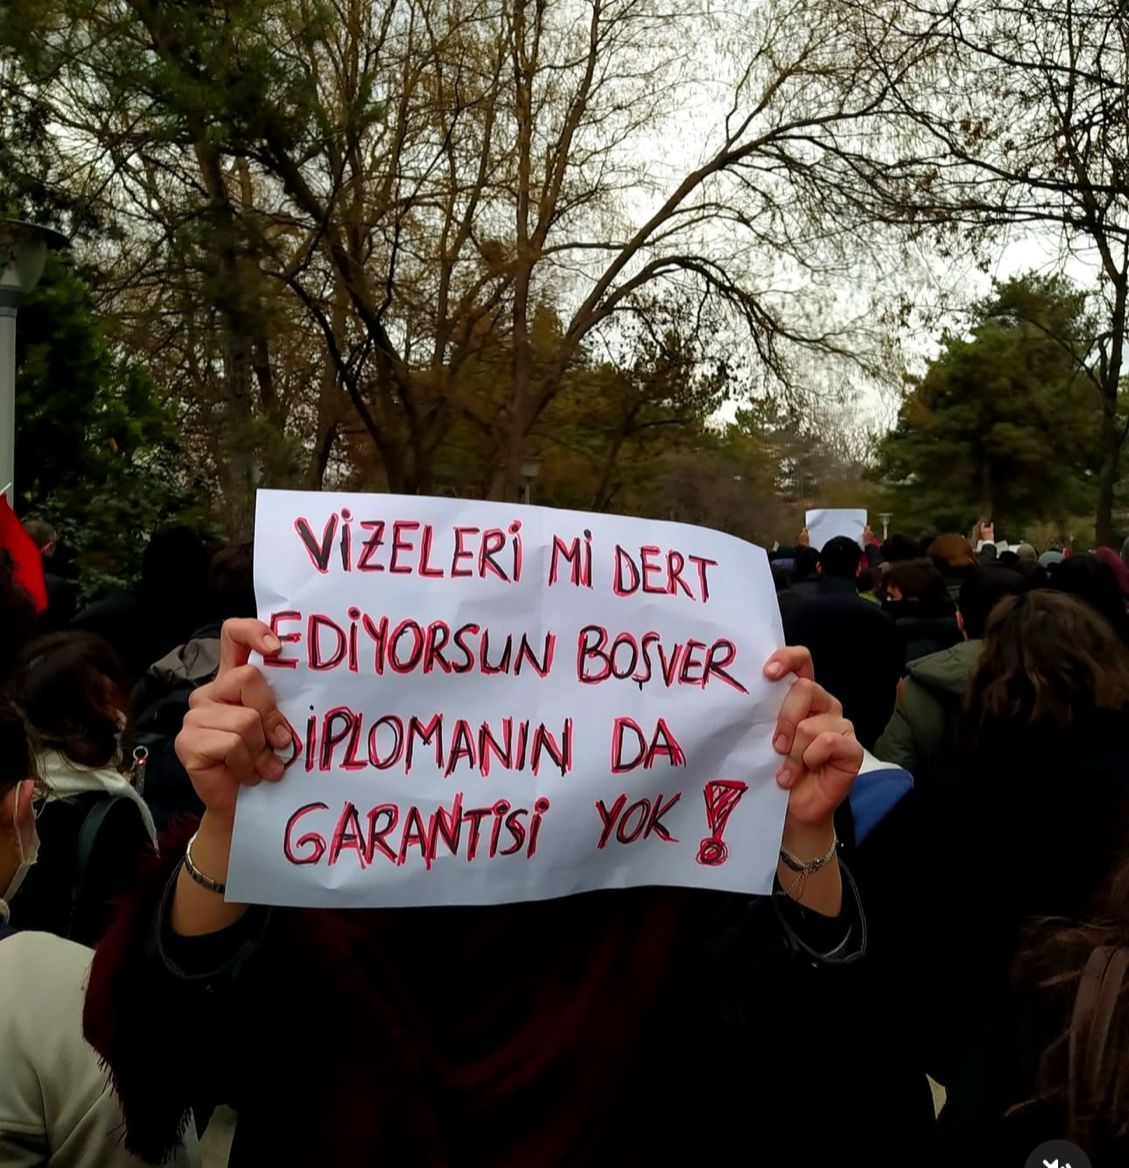 VİZELERİ Mİ DERT
EDİYORSUN BOŞVER
DİPLOMANIN DA
GARANTİSİ YOK !